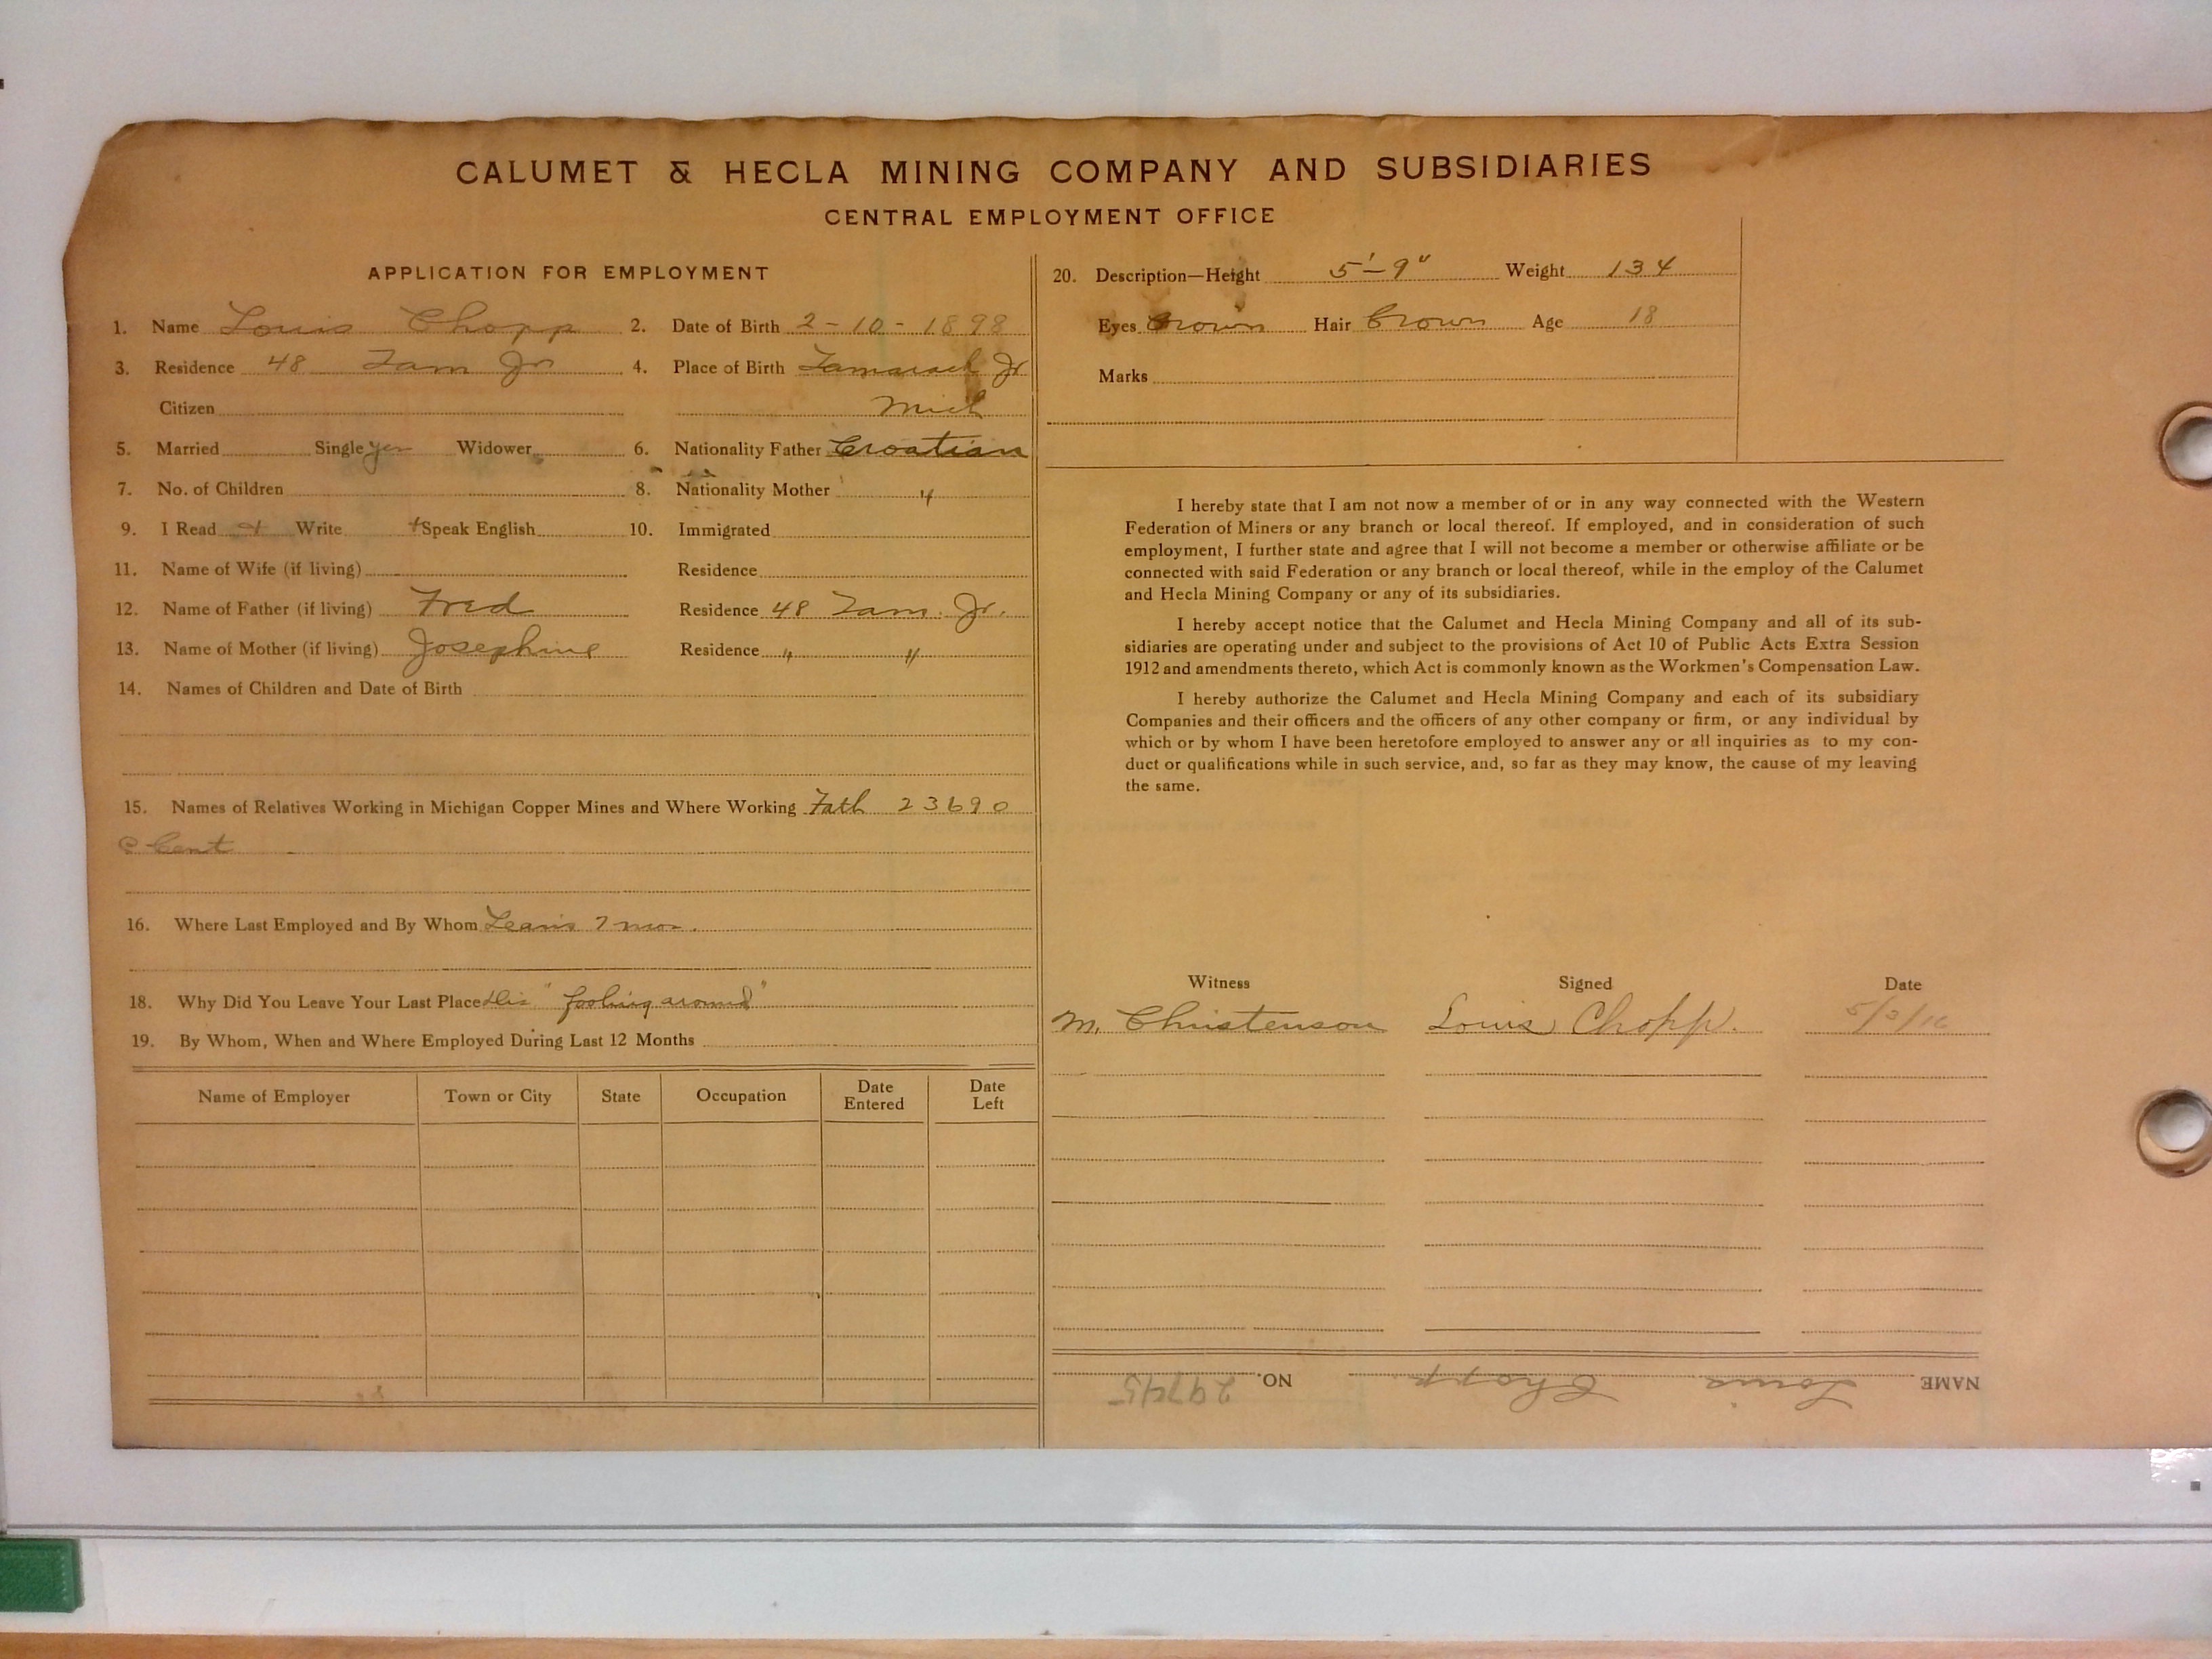 CALUMET & HECLA MINING COMPANY AND SUBSIDIARIES
CENTRAL EMPLOYMENT OFFICE
APPLICATION FOR EMPLOYMENT
1. Name Louis Chopp 2. Date of Birth 2-10-1898
3. Residence 48 Tam Jr 4. Place of Birth Tamarack Jr
Citizen Mich
5. Married Single yes Widower 6. Nationality Father Croatian
7. No. of Children 8. Nationality Mother "
9. I Read + Write + Speak English 10. Immigrated
11. Name of Wife (if living) Residence
12. Name of Father (if living) Fred Residence 48 Tam. Jr.
13. Name of Mother (if living) Josephine Residence " "
14. Names of Children and Date of Birth
15. Names of Relatives Working in Michigan Copper Mines and Where Working Fath 23690
C Cent
16. Where Last Employed and By Whom 7 mos.
18. Why Did You Leave Your Last Place Dis "fooling around"
19. By Whom, When and Where Employed During Last 12 Months
Name of Employer Town or City State Occupation Date Entered Date Left
20. Description—Height 5'-9" Weight 134
Eyes Brown Hair Brown Age 18
Marks
I hereby state that I am not now a member of or in any way connected with the Western
Federation of Miners or any branch or local thereof. If employed, and in consideration of such
employment, I further state and agree that I will not become a member or otherwise affiliate or be
connected with said Federation or any branch or local thereof, while in the employ of the Calumet
and Hecla Mining Company or any of its subsidiaries.
I hereby accept notice that the Calumet and Hecla Mining Company and all of its sub-
sidiaries are operating under and subject to the provisions of Act 10 of Public Acts Extra Session
1912 and amendments thereto, which Act is commonly known as the Workmen's Compensation Law.
I hereby authorize the Calumet and Hecla Mining Company and each of its subsidiary
Companies and their officers and the officers of any other company or firm, or any individual by
which or by whom I have been heretofore employed to answer any or all inquiries as to my con-
duct or qualifications while in such service, and, so far as they may know, the cause of my leaving
the same.
Witness Signed Date
M. Christenson Louis Chopp. 5/3/16
NAME Louis Chopp NO. 29745